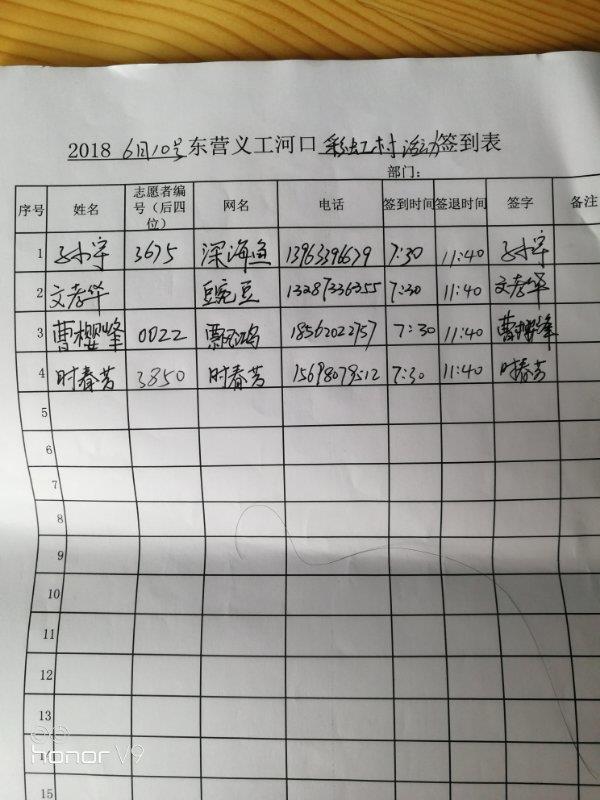 2018 6月10号东营义工河口彩虹村活动签到表
部门:
序号 姓名 志愿者编号（后四位） 网名 电话 签到时间 签退时间 签字 备注
1 3675 深海鱼 13963396679 7:30 11:40
2 文孝华 豌豆 13287336355 7:30 11:40 文孝华
3 曹樱峰 0022 18562022757 7:30 11:40 曹樱峰
4 时春芳 3850 时春芳 7:30 11:40 时春芳
5
6
7
8
9
10
11
12
13
14
15
honor V9